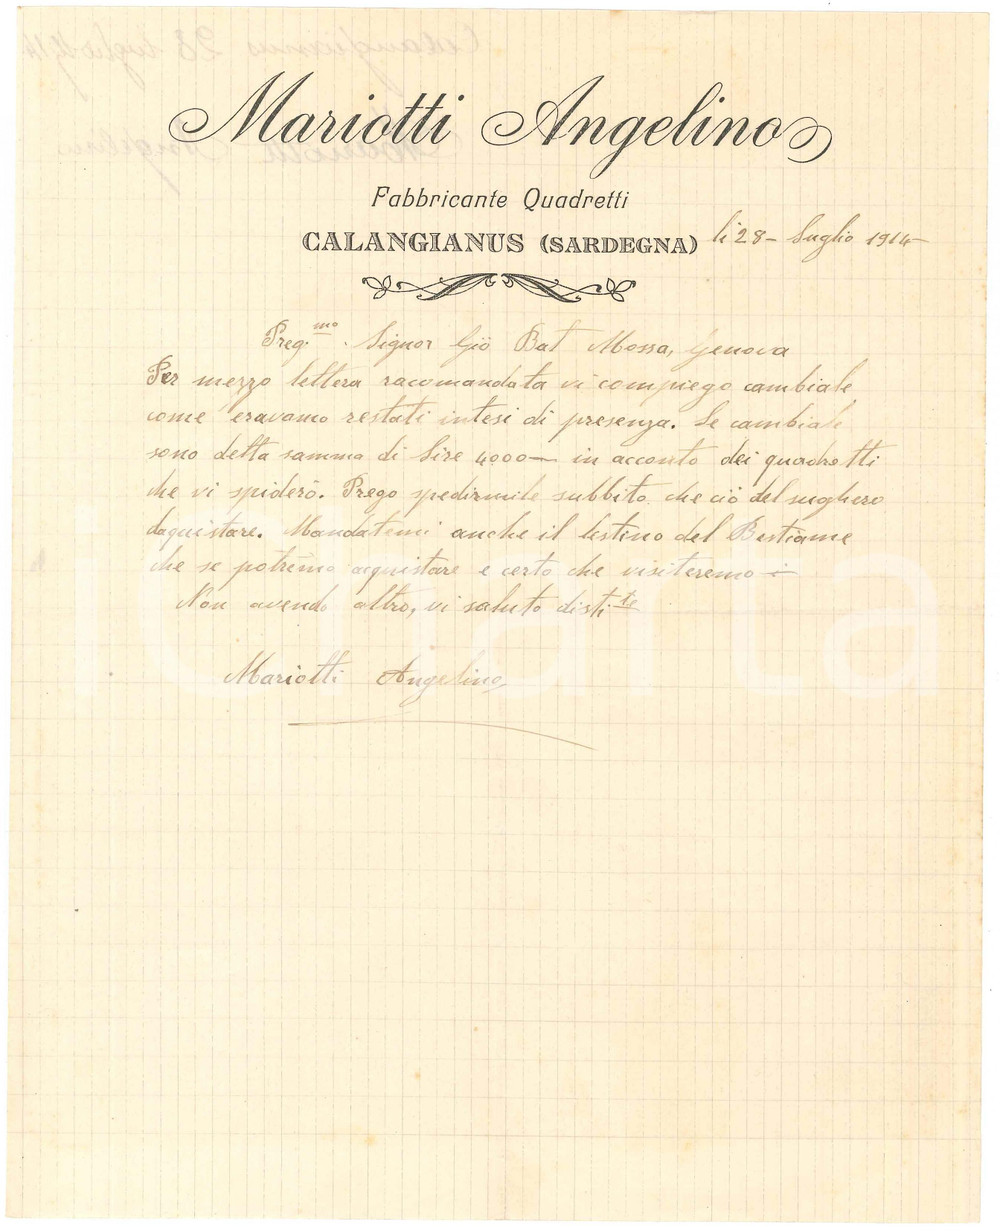 Mariotti Angelino
Fabbricante Quadretti
CALANGIANUS (SARDEGNA) li 28 - Luglio 1914
Preg.mo Signor Giõ Bat Mossa, Genova
Per mezzo lettera racomandata vi compiego cambiale
come eravamo restati intesi di presenza. Le cambiale
sono della somma di Lire 4000 — in acconto dei quadretti
che vi spiderò. Prego spedirmile subbito che ciò del sughero
daquistare. Mandatemi anche il listino del Bestiame
che se potremo acquistare e certo che visiteremo
Non avendo altro, vi saluto disti.te
Mariotti Angelino